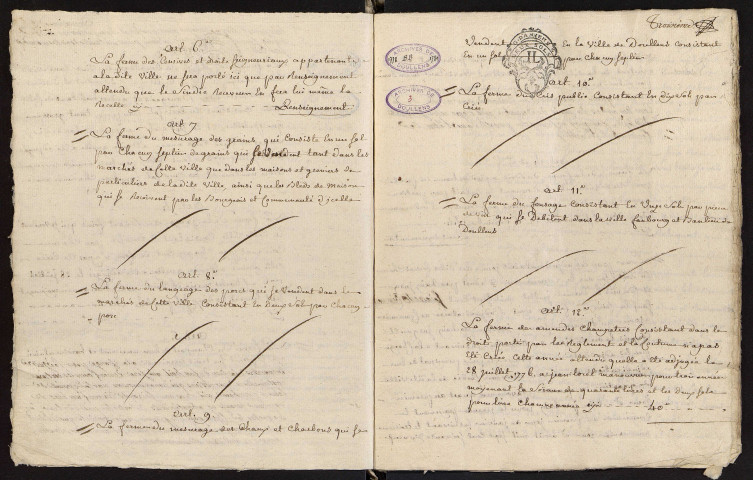 art 6.e
La ferme des Censives et droits seigneuriaux appartenans
a la dite Ville ne sera porté ici que par Renseignement
attendu que le Sindic Receveur en fera lui même la
Recette cy Renseignement
art 7
La ferme du mesurage des grains qui consiste en un sol
par Chacun septier de grains qui se vendent tant dans les
marchés de cette Ville que dans les maisons et greniers de
particuliers de la dite Ville, ainsi que les Bleds de
qui se par les Bourgeois et Communauté d'icelle
art 8.e
La ferme du langueage des porcs qui se vendent dans les
marchés de cette Ville Consistant en deux Sols par Chacun
porc
art. 9
La ferme du mesurage des Chaux et Charbons qui se
Troisième
Vendent en la Ville de Doullens Consistant
en un sol par Chacun septier
art 10.e
La ferme du Cris public Consistant en dix Sols par
Cries
art 11.e
La ferme du forage Consistant en Sols par pièce
de vin qui se Débitent dans la Ville faubourg et Banlieue de
Doullens
art. 12.e
La ferme de amendes Champetres Consistant dans le
droit porté par les Reglement et la Coutume n'a pas
été Criée cette année attendu qu'elle a été adjugée le
28 juillet 1776. a jean pour trois années
moyennant la Somme de quarante livres et les deux sols
pour livre Chacune année cy 40
ARCHIVES DE DOULLENS
ARCHIVES DE DOULLENS